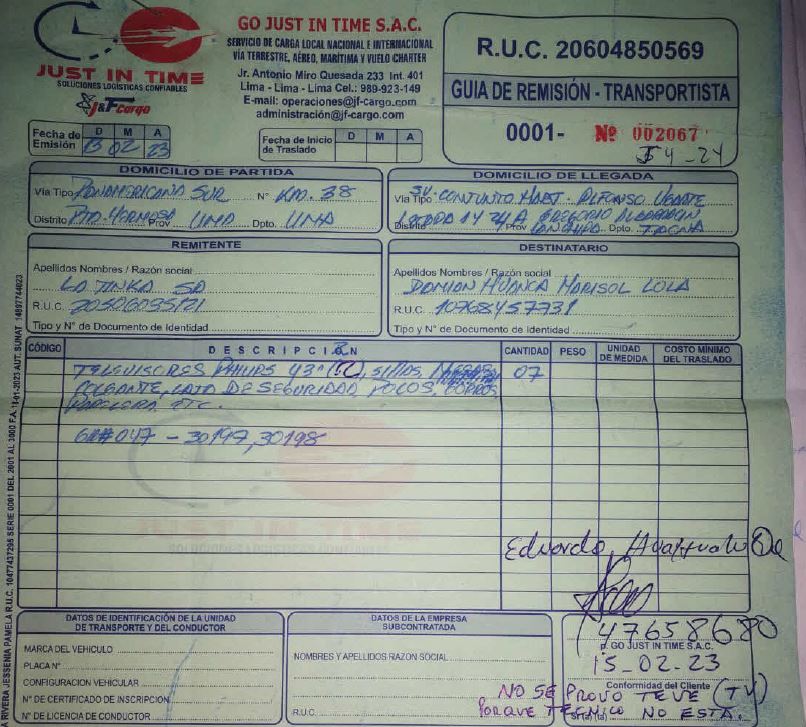 JUST IN TIME
SOLUCIONES LOGÍSTICAS CONFIABLES
J&F cargo
GO JUST IN TIME S.A.C.
SERVICIO DE CARGA LOCAL NACIONAL E INTERNACIONAL
VÍA TERRESTRE, AÉREO, MARÍTIMA Y VUELO CHARTER
Jr. Antonio Miro Quesada 233 Int. 401
Lima - Lima - Lima Cel.: 989-923-149
E-mail: operaciones@jf-cargo.com
administración@jf-cargo.com
R.U.C. 20604850569
GUIA DE REMISIÓN - TRANSPORTISTA
0001- Nº 002067
Fecha de Emisión D M A
13 02 23
Fecha de Inicio de Traslado D M A
DOMICILIO DE PARTIDA
Vía Tipo PANAMERICANA SUR N° KM. 38
Distrito Prov LIMA Dpto. LIMA
DOMICILIO DE LLEGADA
Vía Tipo CONJUNTO HABIT. ALFONSO UGARTE
Distrito GREGORIO Prov Dpto. TACNA
REMITENTE
Apellidos Nombres / Razón social
LA TINKA SA
R.U.C. 20506035121
Tipo y N° de Documento de Identidad
DESTINATARIO
Apellidos Nombres / Razón social
DAMIAN HUANCA MARISOL LOLA
R.U.C. 10768457731
Tipo y N° de Documento de Identidad
CÓDIGO DESCRIPCIÓN CANTIDAD PESO UNIDAD DE MEDIDA COSTO MÍNIMO DEL TRASLADO
TELEVISORES PHILIPS 43" SILLAS, MESAS 07
COLGANTE, LATA DE SEGURIDAD, POLOS, GORROS
PAPELERA ETC.
047 - 30197, 30198
Eduardo
47658680
p. GO JUST IN TIME S.A.C.
15-02-23
Conformidad del Cliente
NO SE PROVO TEVE (TV)
PORQUE TECNICO NO ESTA
DATOS DE IDENTIFICACIÓN DE LA UNIDAD DE TRANSPORTE Y DEL CONDUCTOR
MARCA DEL VEHICULO
PLACA N°
CONFIGURACIÓN VEHICULAR
N° DE CERTIFICADO DE INSCRIPCIÓN
N° DE LICENCIA DE CONDUCTOR
DATOS DE LA EMPRESA SUBCONTRATADA
NOMBRES Y APELLIDOS RAZON SOCIAL
R.U.C.
RIVERA JESSENIA PAMELA R.U.C. 10477437295 SERIE 0001 DEL 2001 AL 3000 F.A. AUT. SUNAT 14897744023